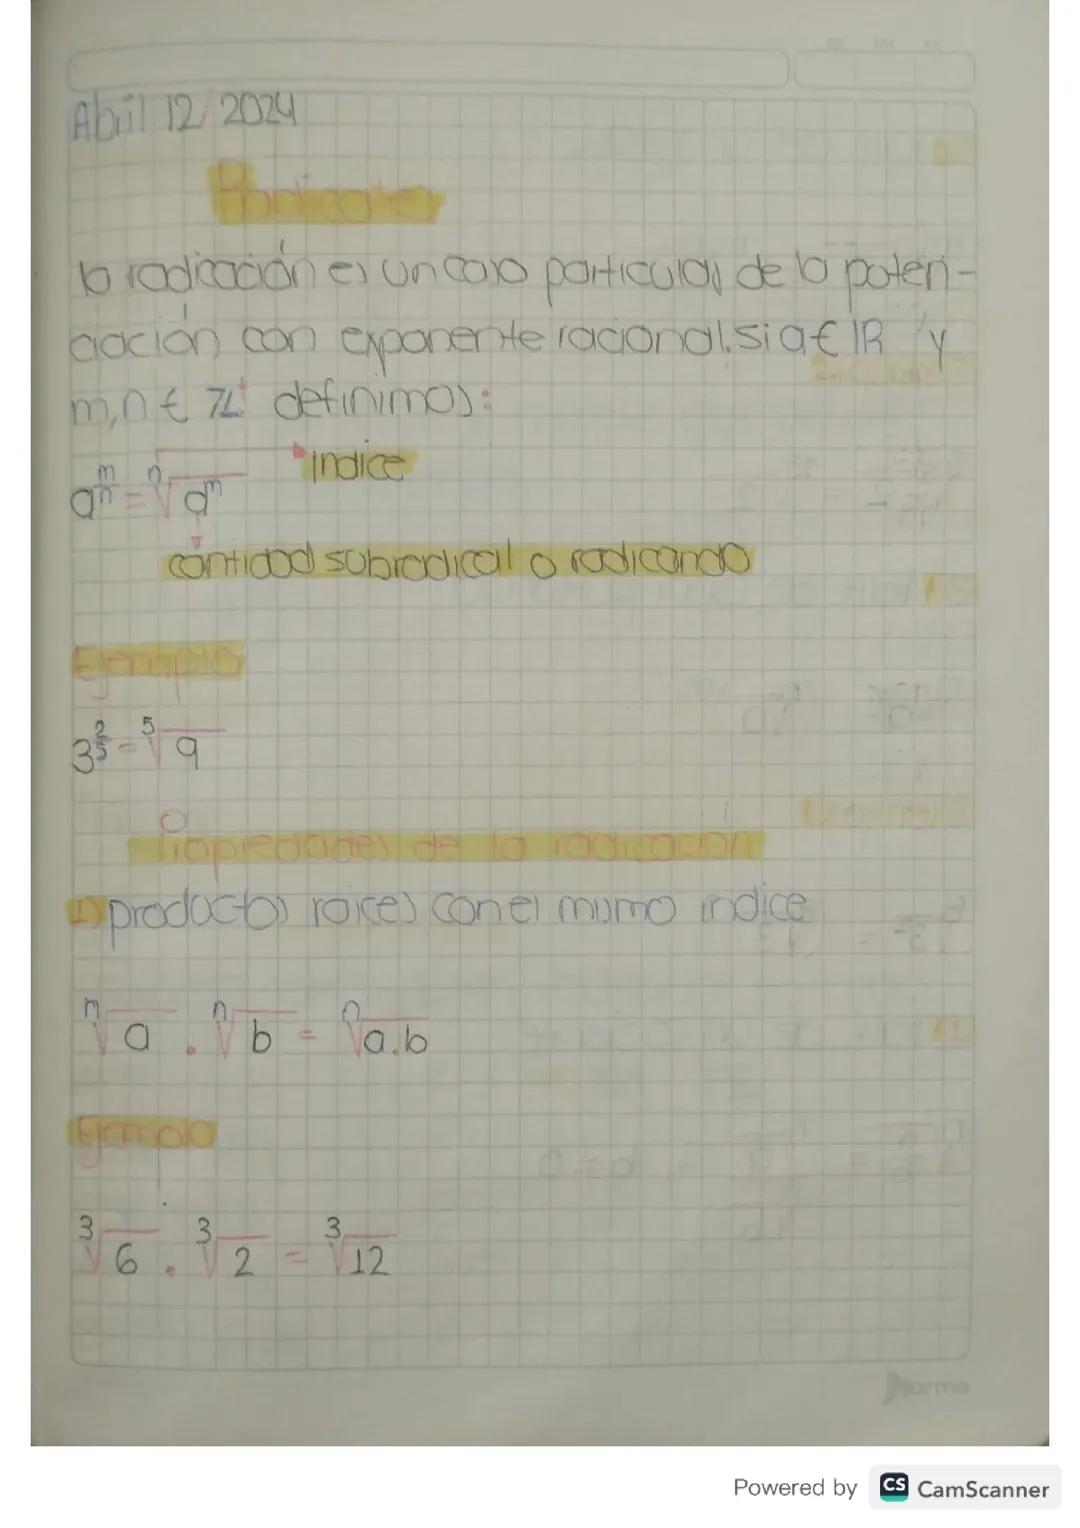 Abril 12/2024
Radicales
la radicación es un caso particular de la poten-
ciación con exponente racional. si a ∈ ℝ y
m, n ∈ ℤ⁺ definimos:
a^(m/n) = ⁿ√a^m indice
cantidad subradical o radicando
Ejemplo
3^(2/5) = ⁵√9
Propiedades de la radicación
1) productos raices con el mismo indice
ⁿ√a . ⁿ√b = ⁿ√a.b
Ejemplo
³√6 . ³√2 = ³√12
Norma
Powered by CS CamScanner